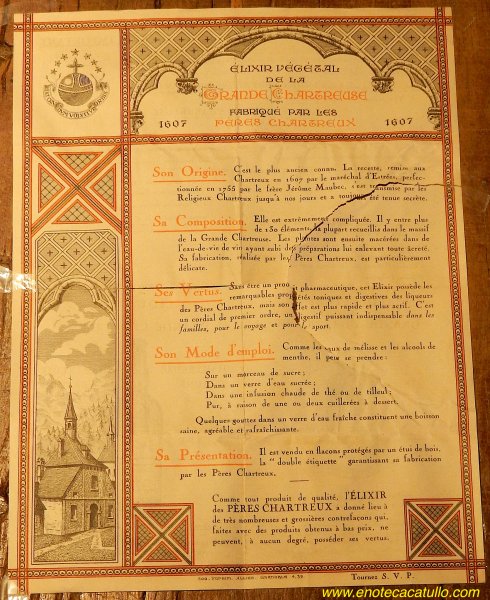 ÉLIXIR VÉGÉTAL
DE LA
GRANDE CHARTREUSE
FABRIQUÉ PAR LES
PÈRES CHARTREUX
1607
1607
Son Origine. C'est le plus ancien connu. La recette, remise aux
Chartreux en 1607 par le maréchal d'Estrées, perfec-
tionnée en 1755 par le frère Jérôme Maubec, s'est transmise par les
Religieux Chartreux jusqu'à nos jours et a toujours été tenue secrète.
Sa Composition. Elle est extrêmement compliquée. Il y entre plus
de 130 éléments, la plupart recueillis dans le massif
de la Grande Chartreuse. Les plantes sont ensuite macérées dans de
l'eau-de-vie de vin ayant subi des préparations lui enlevant toute âcreté.
Sa fabrication, réalisée par les Pères Chartreux, est particulièrement
délicate.
Ses Vertus. Sans être un produit pharmaceutique, cet Elixir possède les
remarquables propriétés toniques et digestives des liqueurs
des Pères Chartreux, mais son effet est plus rapide et plus actif. C'est
un cordial de premier ordre, un digestif puissant indispensable dans les
familles, pour le voyage et pour le sport.
Son Mode d'emploi. Comme les eaux de mélisse et les alcools de
menthe, il peut se prendre :
Sur un morceau de sucre ;
Dans un verre d'eau sucrée ;
Dans une infusion chaude de thé ou de tilleul ;
Pur, à raison de une ou deux cuillerées à dessert.
Quelques gouttes dans un verre d'eau fraîche constituent une boisson
saine, agréable et rafraîchissante.
Sa Présentation. Il est vendu en flacons protégés par un étui de bois,
la "double étiquette" garantissant sa fabrication
par les Pères Chartreux.
Comme tout produit de qualité, l'ÉLIXIR
des PÈRES CHARTREUX a donné lieu à
de très nombreuses et grossières contrefaçons qui,
faites avec des produits obtenus à bas prix, ne
peuvent, à aucun degré, posséder ses vertus.
Tournez S. V. P.
www.enotecacatullo.com